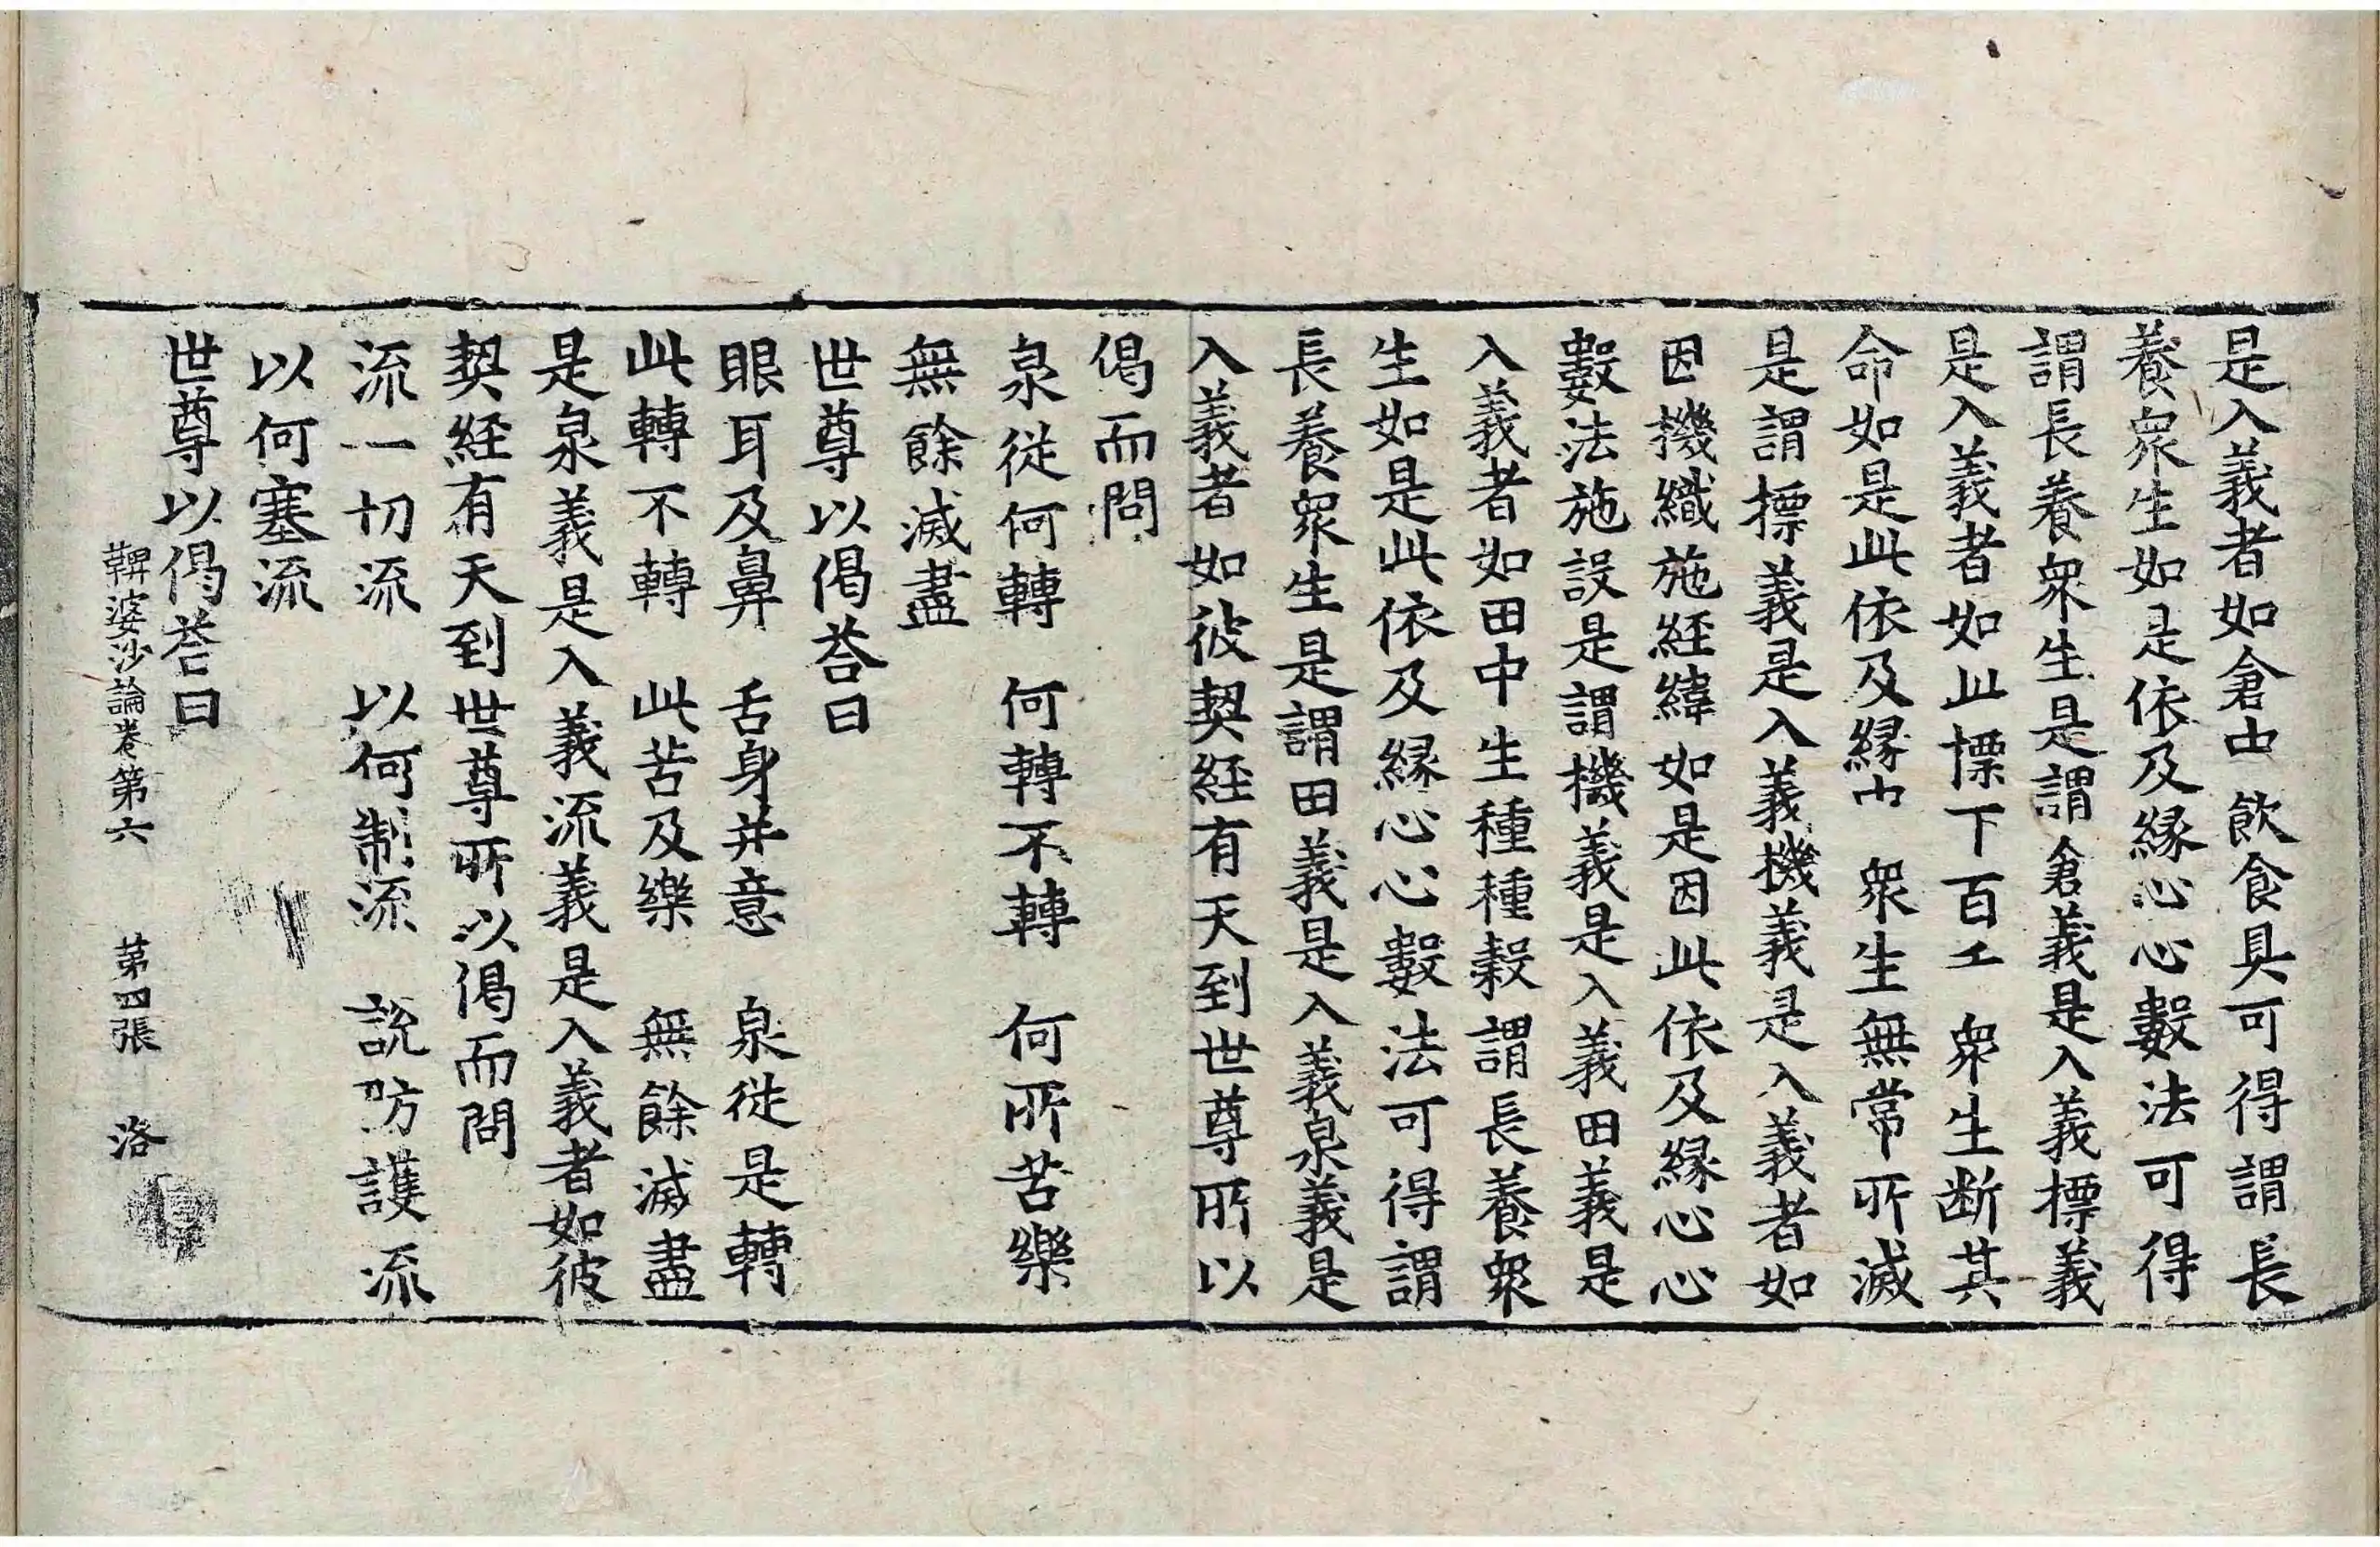 是入義者如倉中飲食具可得謂長
養衆生如是依及縁心心數法可得
謂長養衆生是謂倉義是入義標義
是入義者如此標下百千衆生断其
命如是此依及縁中衆生無常所滅
是謂標義是入義機義是入義者如
因機織施経緯如是因此依及縁心心
數法施設是謂機義是入義田義是
入義者如田中生種種穀謂長養衆
生如是此依及縁心心數法可得謂
長養衆生是謂田義是入義泉義是
入義者如彼契経有天到世尊所以
偈而問
泉従何轉　何轉不轉　何所苦樂
無餘滅盡
世尊以偈荅曰
眼耳及鼻　舌身并意　泉従是轉
此轉不轉　此苦及樂　無餘滅盡
是泉義是入義流義是入義者如彼
契経有天到世尊所以偈而問
流一切流　以何制流　説防護流
以何塞流
世尊以偈荅曰
鞞婆沙論卷第六　第四張　洛